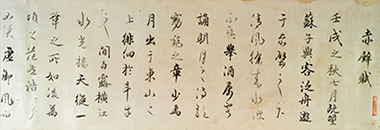 赤壁賦
壬戌之秋七月既望
蘇子與客泛舟遊
于赤壁之下
清風徐來水波
不興舉酒屬客
誦明月之詩歌
窈窕之章少焉
月出于東山之
上徘徊於斗牛
之間白露橫江
水光接天縱一
葦之所如凌萬
頃之茫然浩
虛御風